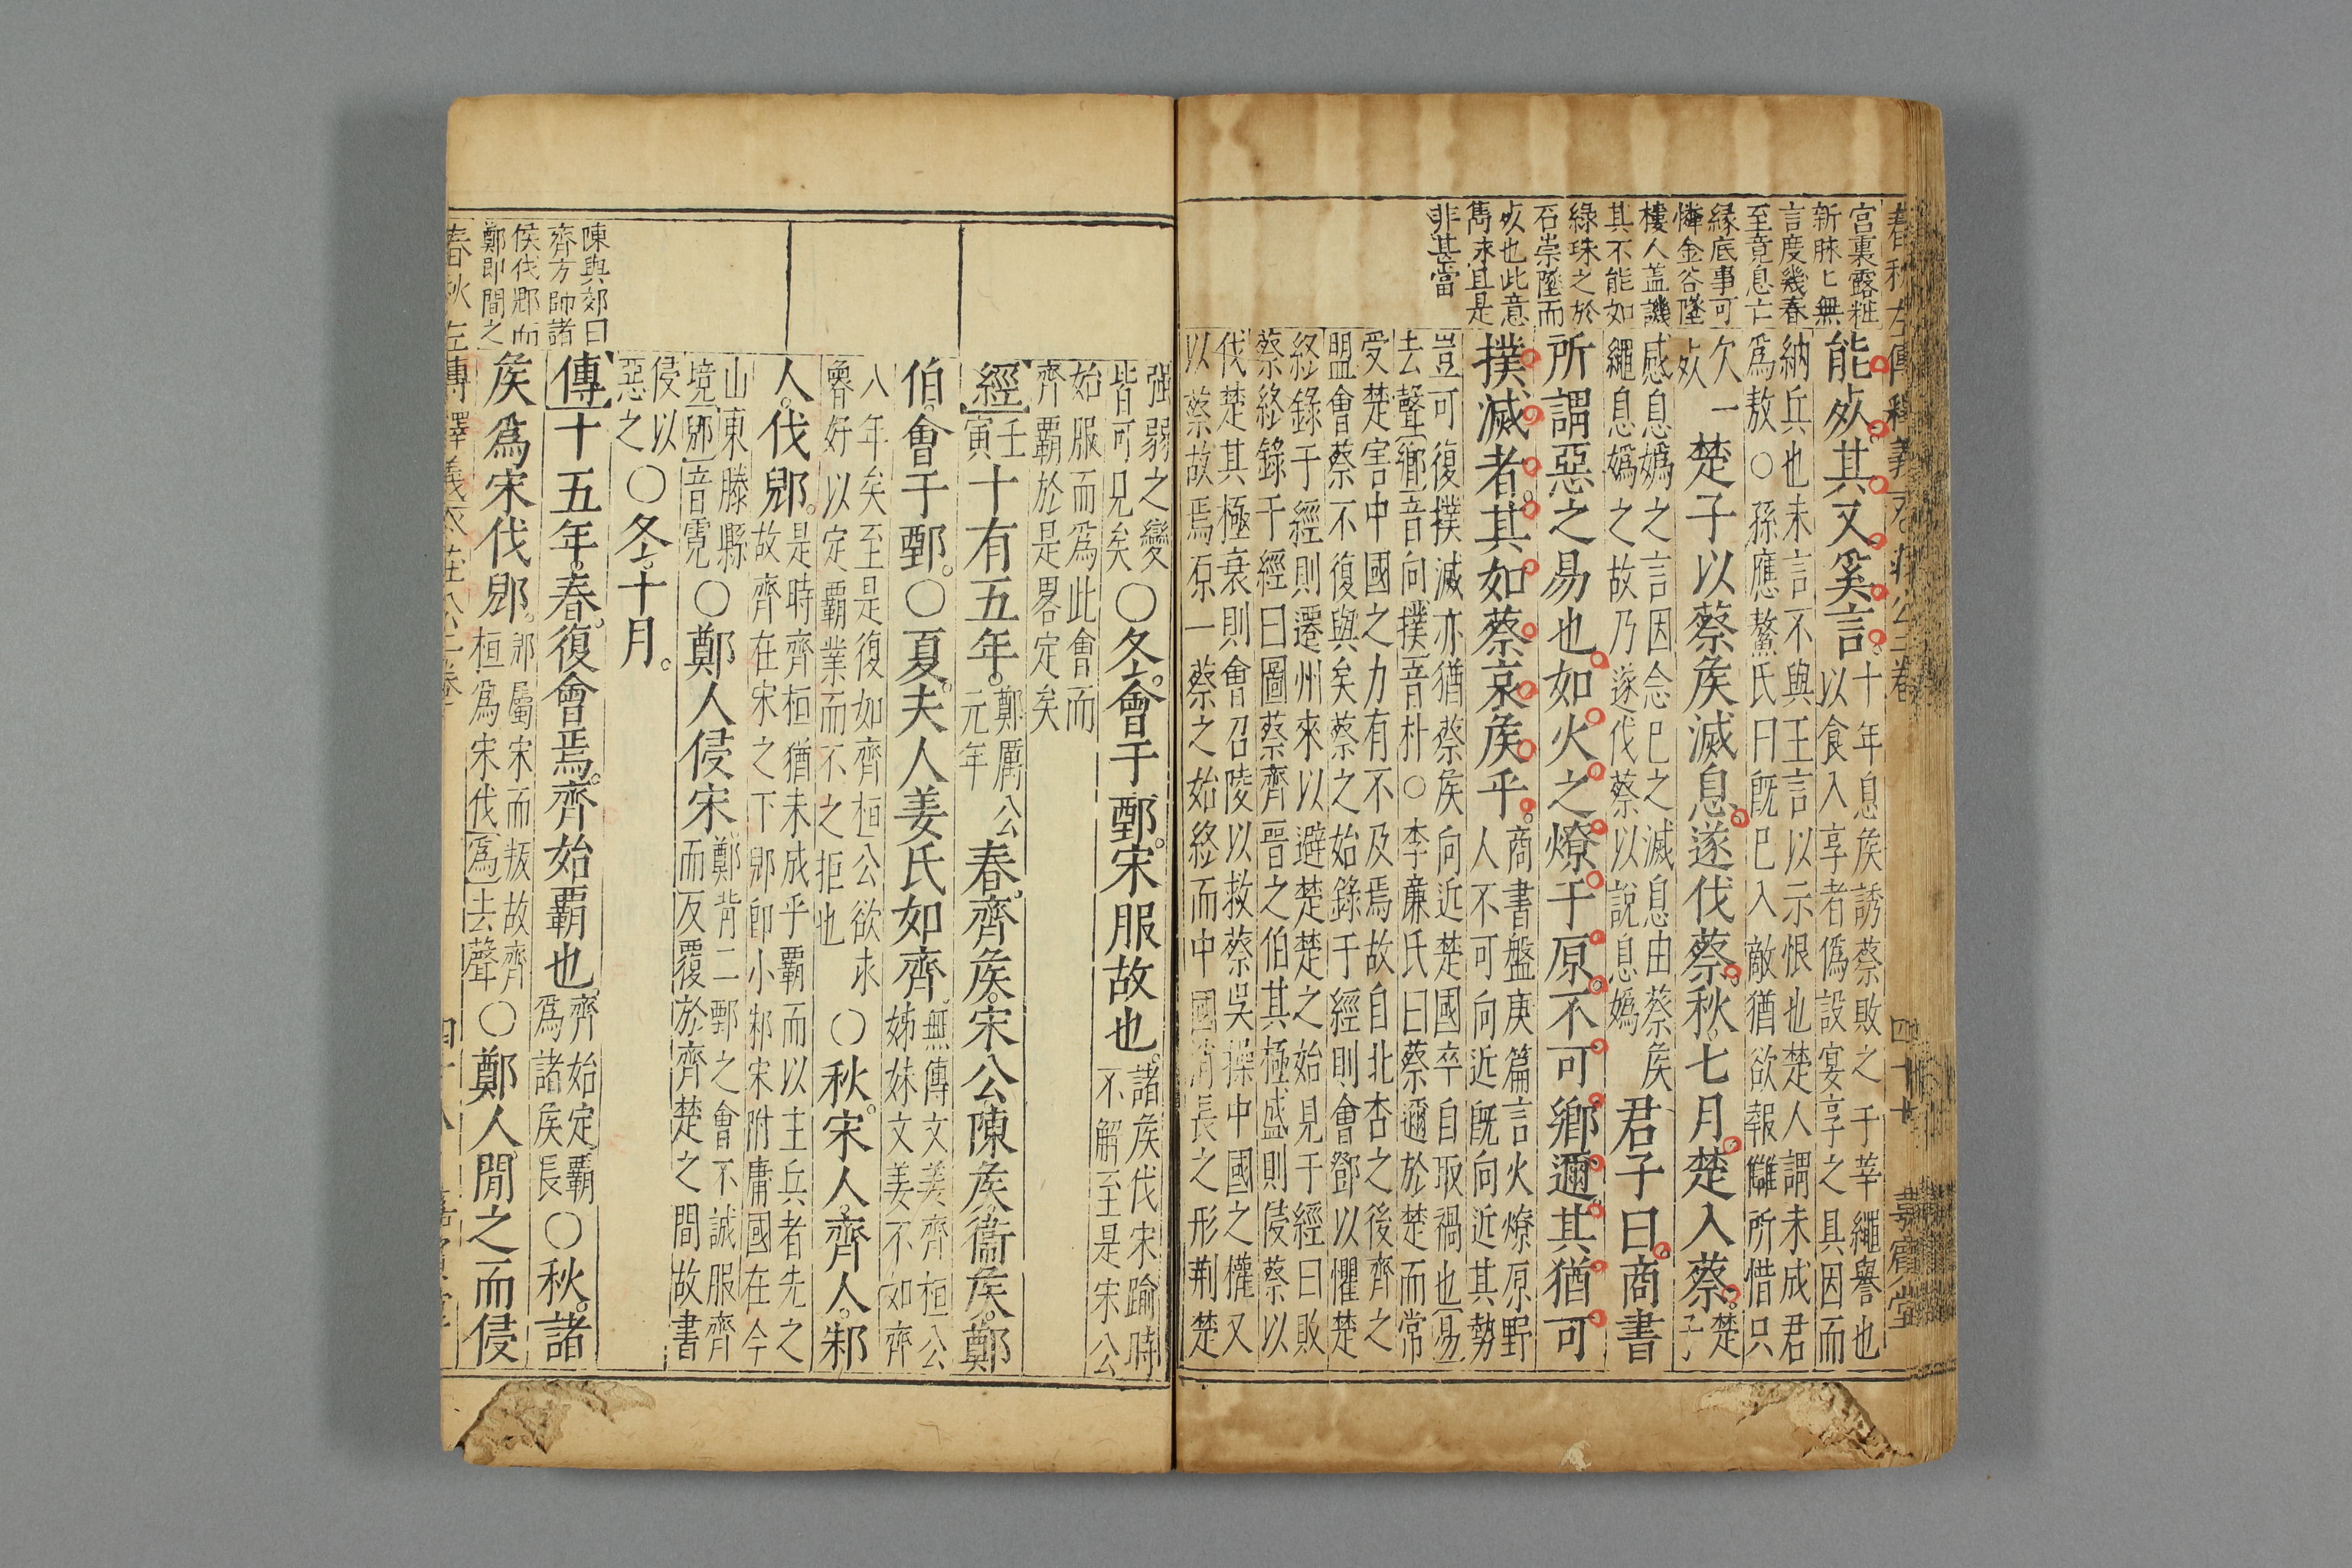 春秋左傳釋義 莊公三卷 四十七 嘉賓堂
宮裏露粧
新脉匕無
言度幾春
至竟息亡
縁底事可
憐金谷墜
樓人蓋譏
其不能如
綠珠之於
石崇墜而
死也此意
雋永且是
非甚當
能死其又奚言。十年息矦誘蔡敗之于莘繩譽也
以食入享者僞設宴享之具因而
納兵也未言不與王言以示恨也楚人謂未成君
爲敖○孫應鰲氏曰旣巳入敵猶欲報讎所惜只
欠一死 楚子以蔡矦滅息遂伐蔡秋七月楚入蔡。楚子
感息嬀之言因念巳之滅息由蔡矦
繩息嬀之故乃遂伐蔡以說息嬀 君子曰商書
所謂惡之易也如火之燎于原不可鄉邇其猶可
撲滅者。其如蔡哀矦乎。商書盤庚篇言火燎原野
人不可向近旣向近其勢
豈可復撲滅亦猶蔡矦向近楚國卒自取禍也易
去聲鄉音向撲音朴○李廉氏曰蔡邇於楚而常
受楚害中國之力有不及焉故自北杏之後齊之
盟會蔡不復與矣蔡之始錄于經則會鄧以懼楚
終錄于經則遷州來以避楚楚之始見于經曰敗
蔡終錄于經曰圍蔡齊晉之伯其極盛則侵蔡以
伐楚其極衰則會召陵以救蔡吳操中國之權又
以蔡故焉原一蔡之始終而中國消長之形荆楚
強弱之變
皆可見矣 ○冬。會于鄄。宋服故也。諸矦伐宋踰時
不解至是宋公
始服而爲此會而
齊覇於是畧定矣
經 壬寅 十有五年。鄭厲公元年 春。齊矦。宋公陳矦。衞矦。鄭
伯。會于鄄。○夏。夫人姜氏如齊。無傳文姜齊桓公
姊妹文姜不如齊
八年矣至是復如齊桓公欲求
魯好以定覇業而不之拒也 ○秋。宋人。齊人。邾
人。伐郳。是時齊桓猶未成乎覇而以主兵者先之
故齊在宋之下郳卽小邾宋附庸國在今
山東滕縣
境郳音霓 ○鄭人侵宋 鄭背二鄄之會不誠服齊
而反覆於齊楚之間故書
侵以
惡之 ○冬。十月。
傳 十五年。春。復會焉。齊始覇也。齊始定覇
爲諸矦長 ○秋。諸
矦爲宋伐郳。郳屬宋而叛故齊
桓爲宋伐爲去聲 ○鄭人。間之而侵
陳與郊曰
齊方帥諸
侯伐郳而
鄭卽間之
春秋左傳釋義 莊公三卷 四十八